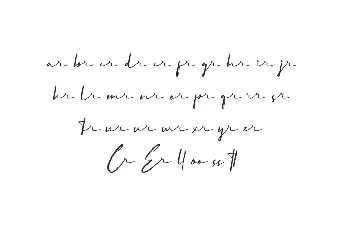 ar br cr dr er fr gr hr ir jr
kr lr mr nr or pr qr rr sr
tr ur vr wr xr yr zr
Cr Er ll oo ss tt